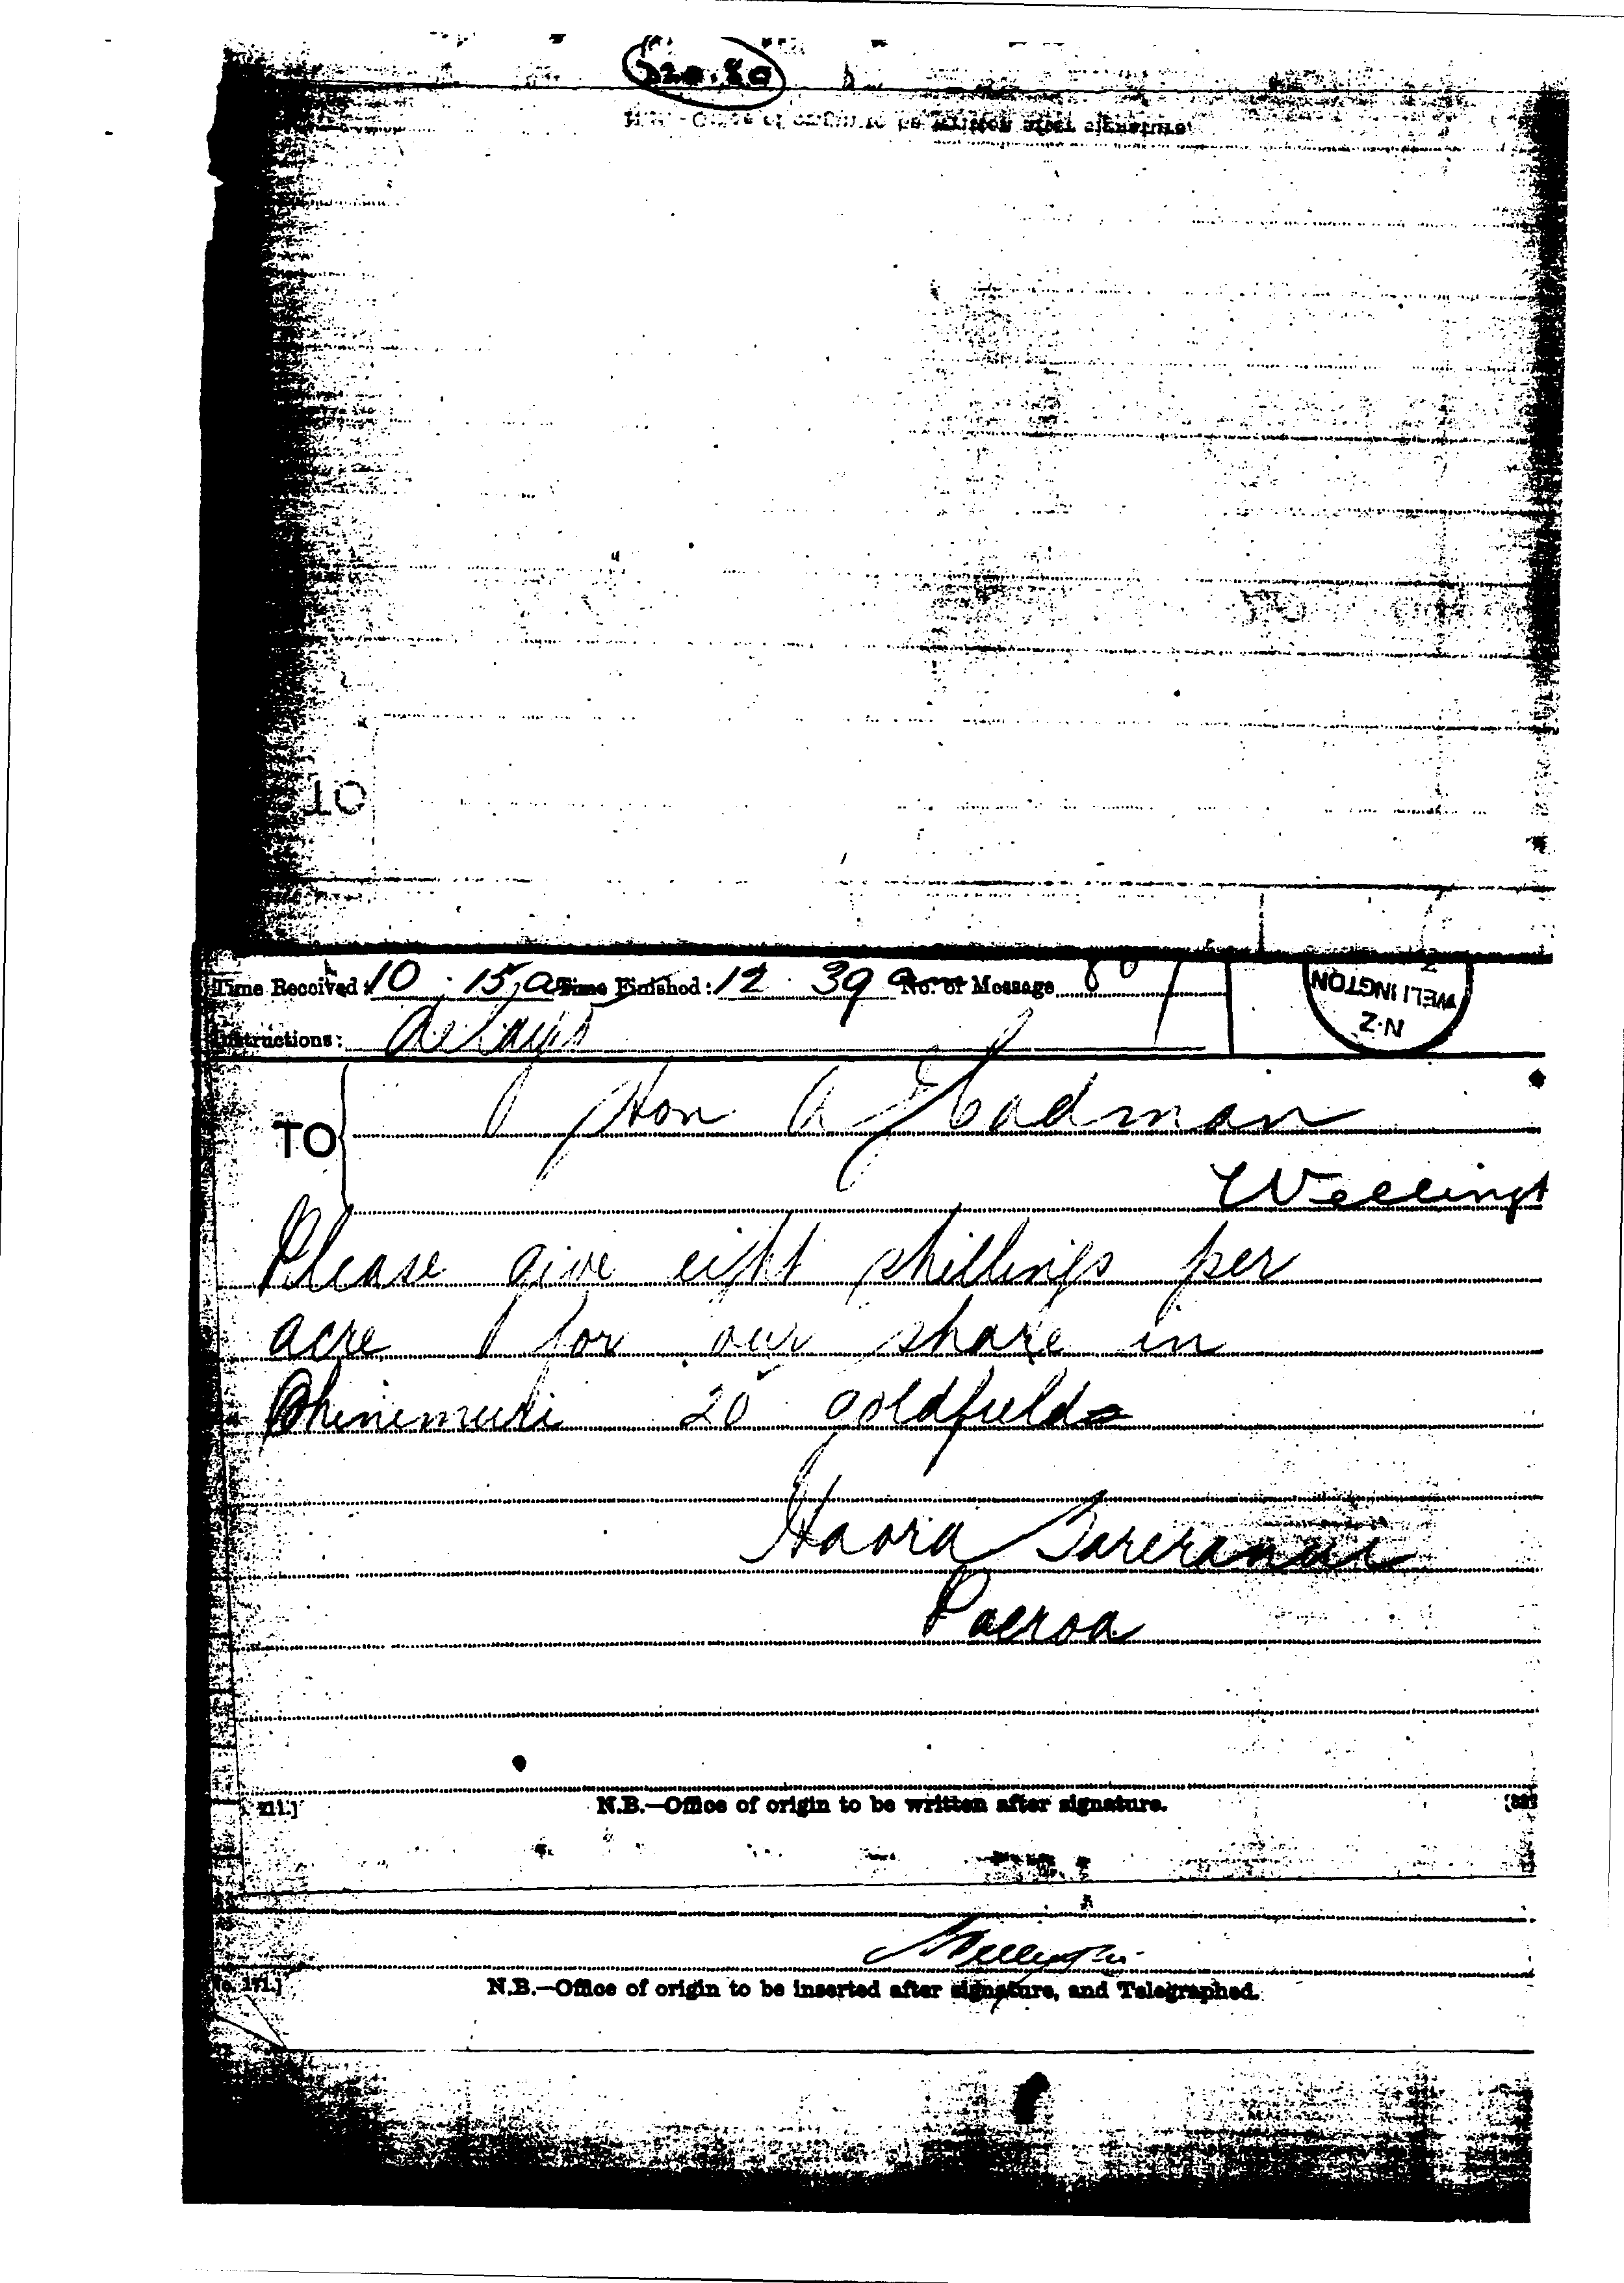 TO
Time Received: 10.15 a Time Finished: 12.39 No. of Message
Instructions: delayed
WELLINGTON
N·Z
TO Hon A J Cadman
Wellingt
Please give eight shillings per
acre for our share in
Ohinemuri 20 goldfields
Haora Tareranui
Paeroa
N.B.—Office of origin to be written after signature.
N.B.—Office of origin to be inserted after signature, and Telegraphed.